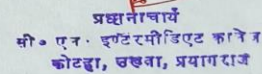 प्रधानाचार्य
सी० एन. इण्टरमीडिएट कालेज
कोटहा, उखवा, प्रयागराज